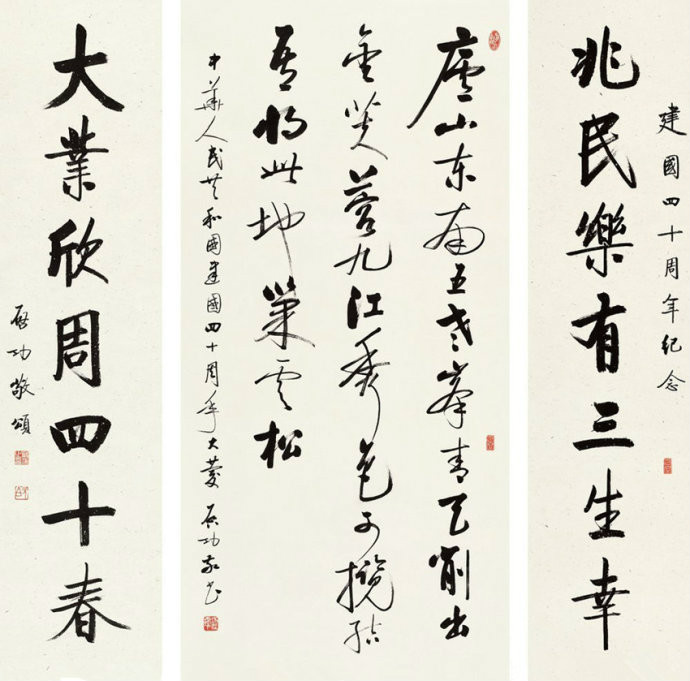 建國四十周年紀念
兆民樂有三生幸
廬山东南五老峯青天削出
金芙蓉九江秀色可攬結
吾將此地巢雲松
中華人民共和國建國四十周年大慶 启功敬书
大業欣周四十春
启功敬頌